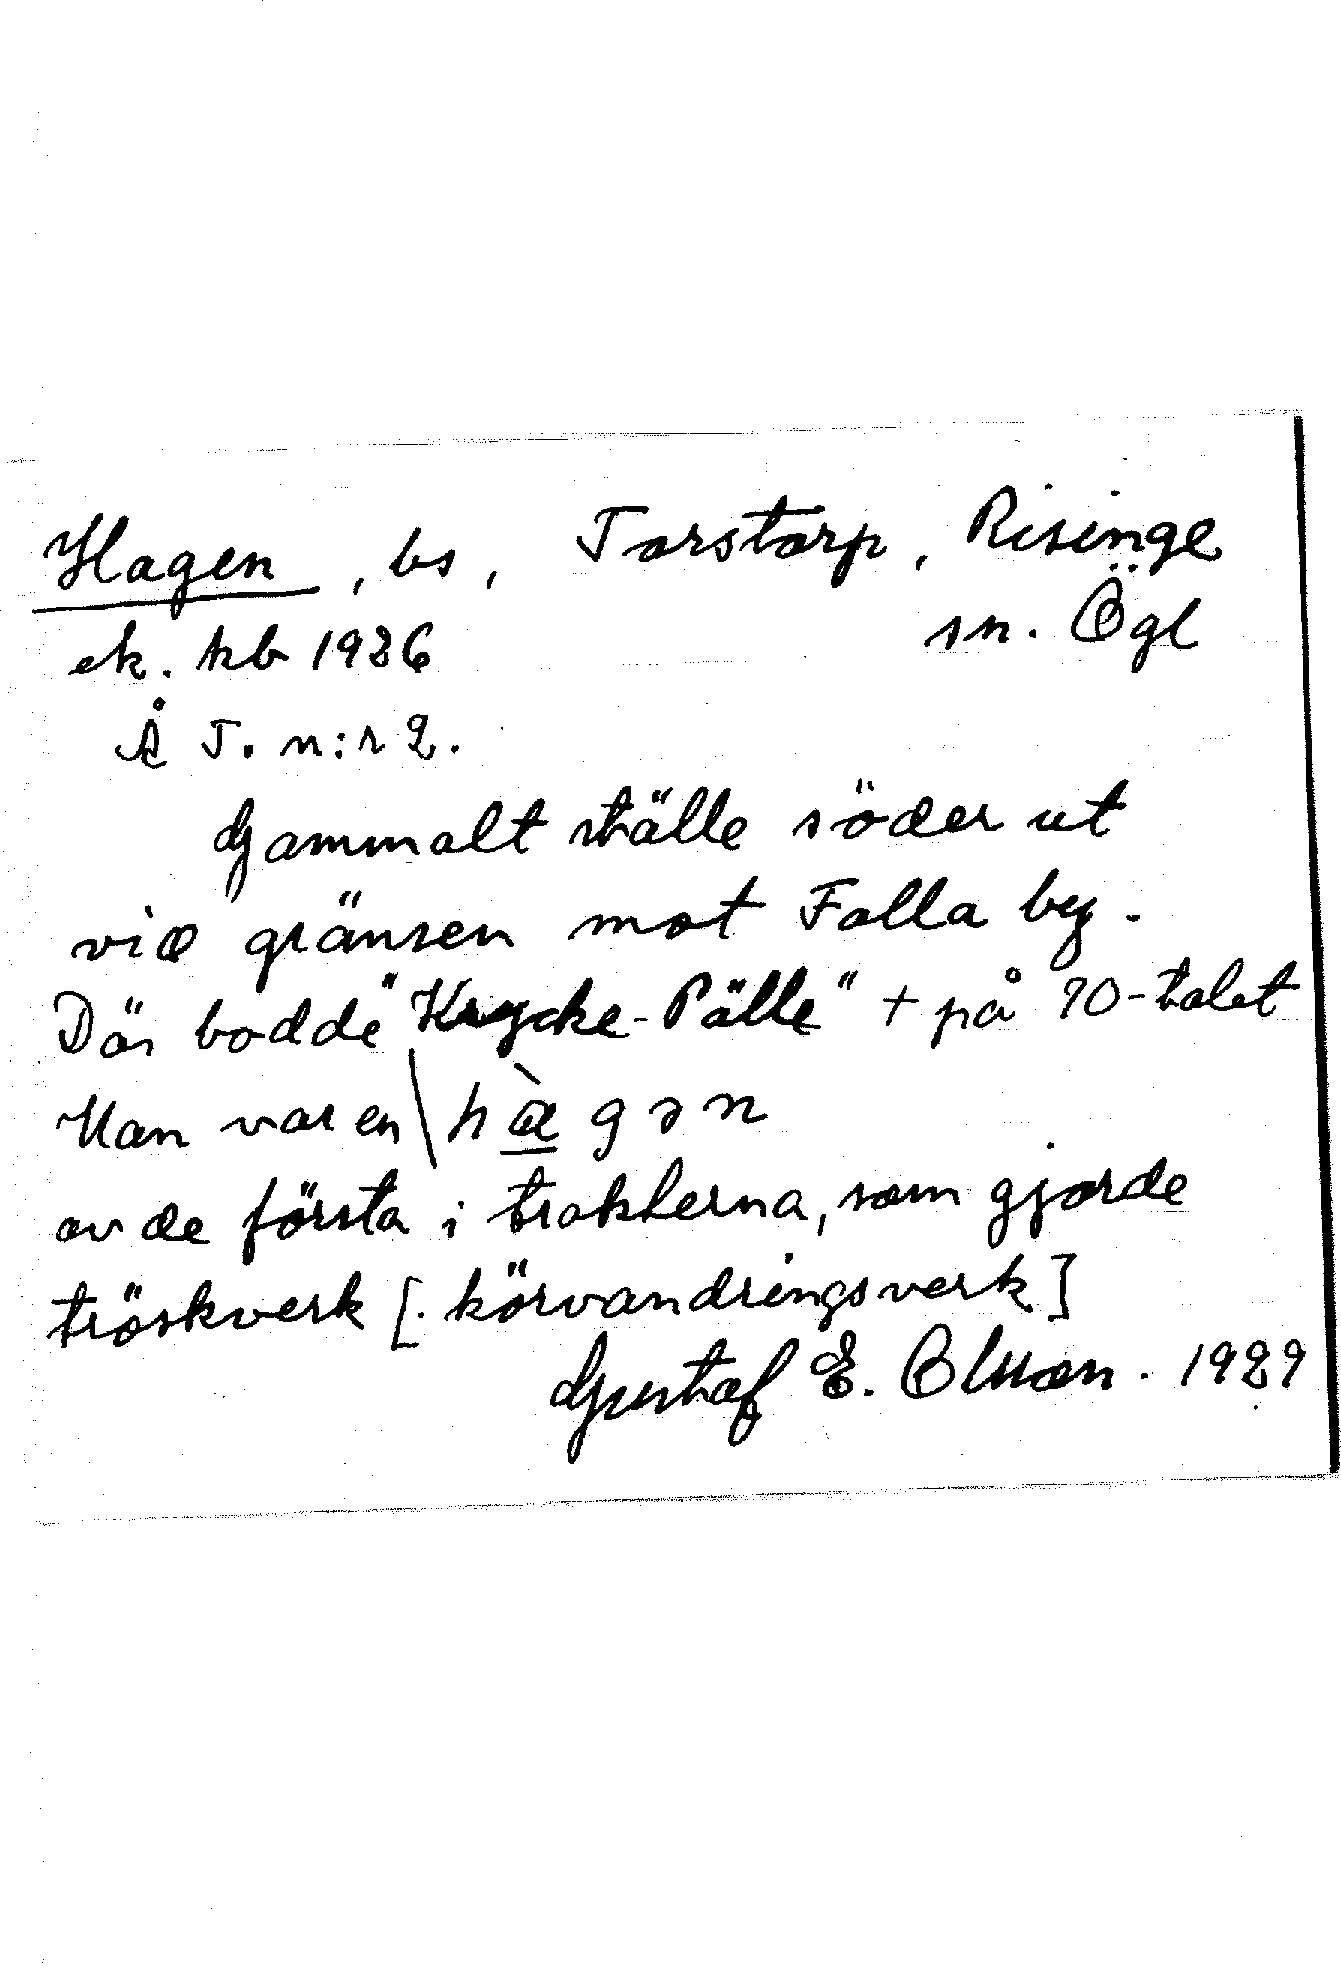 Hagen, bs, Torstorp, Risinge
ek. kb 1926 sn. Ögl
Å T. n:r 2.
Gammalt ställe söder ut
vid gränsen mot Falla by.
Där bodde "Krycke-Pälle" + på 70-talet
Han var en \ hàgən
av de första i trakterna, som gjorde
tröskverk [. körvandringsverk]
Gustaf E. Olsson. 1929